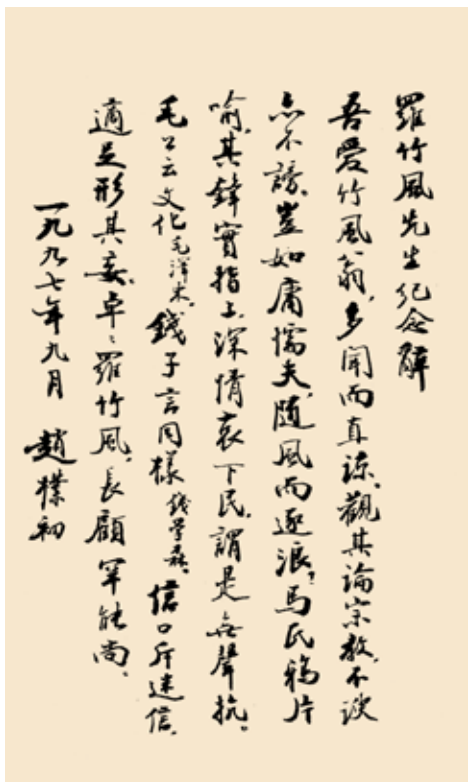 羅竹風先生纪念辭
吾愛竹風翁，多聞而直諒。觀其論宗教，不諛
亦不謗。豈如庸懦夫，隨風而逐浪？馬氏鴉片
喻，其鋒實指上。深情哀下民，謂是無聲抗。
毛公云文化毛澤东，錢子言同樣錢學森。信口斥迷信，
適足形其妄。卓々羅竹風，長顧罕能尚。
一九九七年九月 趙樸初